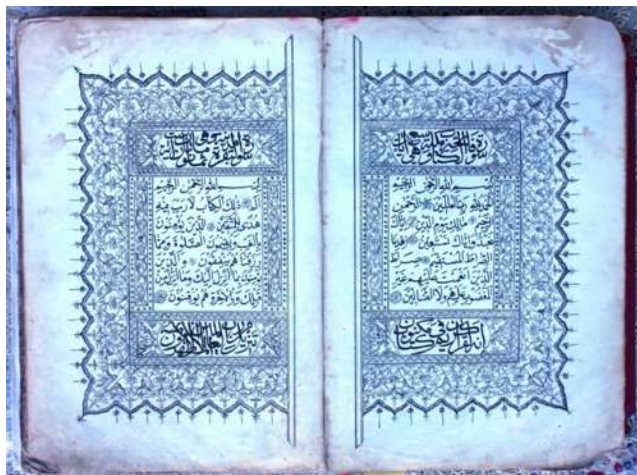 سورة فاتحة الكتاب مكية وهي سبع
بسم الله الرحمن الرحيم
الحمد لله رب العالمين الرحمن
الرحيم مالك يوم الدين اياك
نعبد واياك نستعين اهدنا
الصراط المستقيم صراط
الذين انعمت عليهم غير
المغضوب عليهم ولا الضالين
انه لقرآن كريم في كتاب مكنون
سورة البقرة مدنية وهي
بسم الله الرحمن الرحيم
الم ذلك الكتاب لا ريب فيه
هدى للمتقين الذين يؤمنون
بالغيب ويقيمون الصلوة ومما
رزقناهم ينفقون والذين
يؤمنون بما انزل اليك وما انزل من
قبلك وبالاخرة هم يوقنون
لا يمسه الا المطهرون تنزيل من رب العالمين